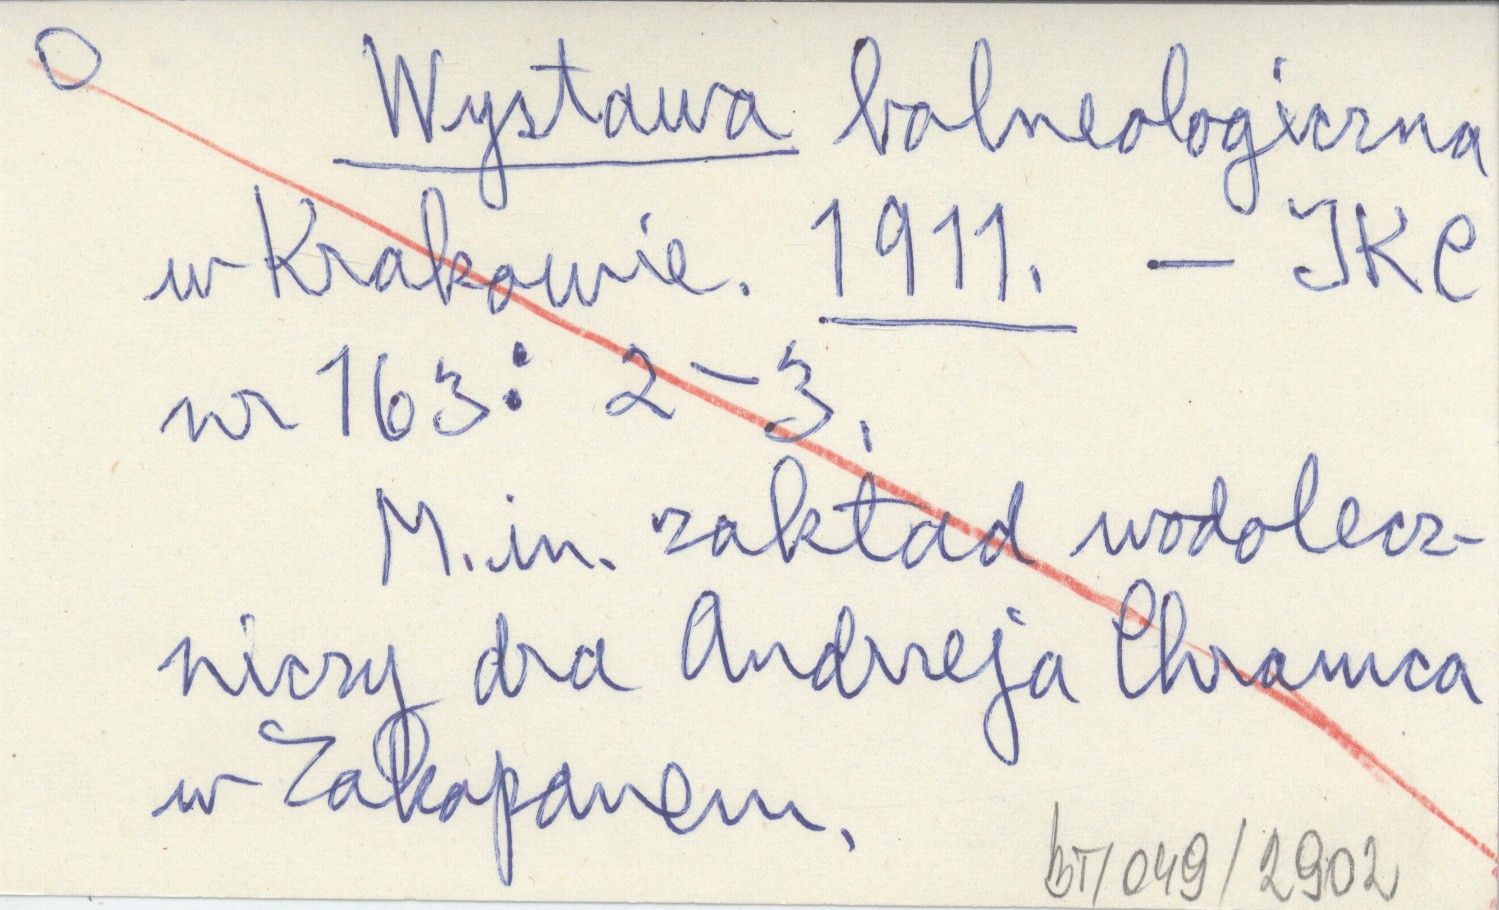 Wystawa balneologiczna
w Krakowie. 1911. — IKC
nr 163: 2-3.
M.in. zakład wodolecz-
niczy dra Andrzeja Chramca
w Zakopanem.
BT/049/2902